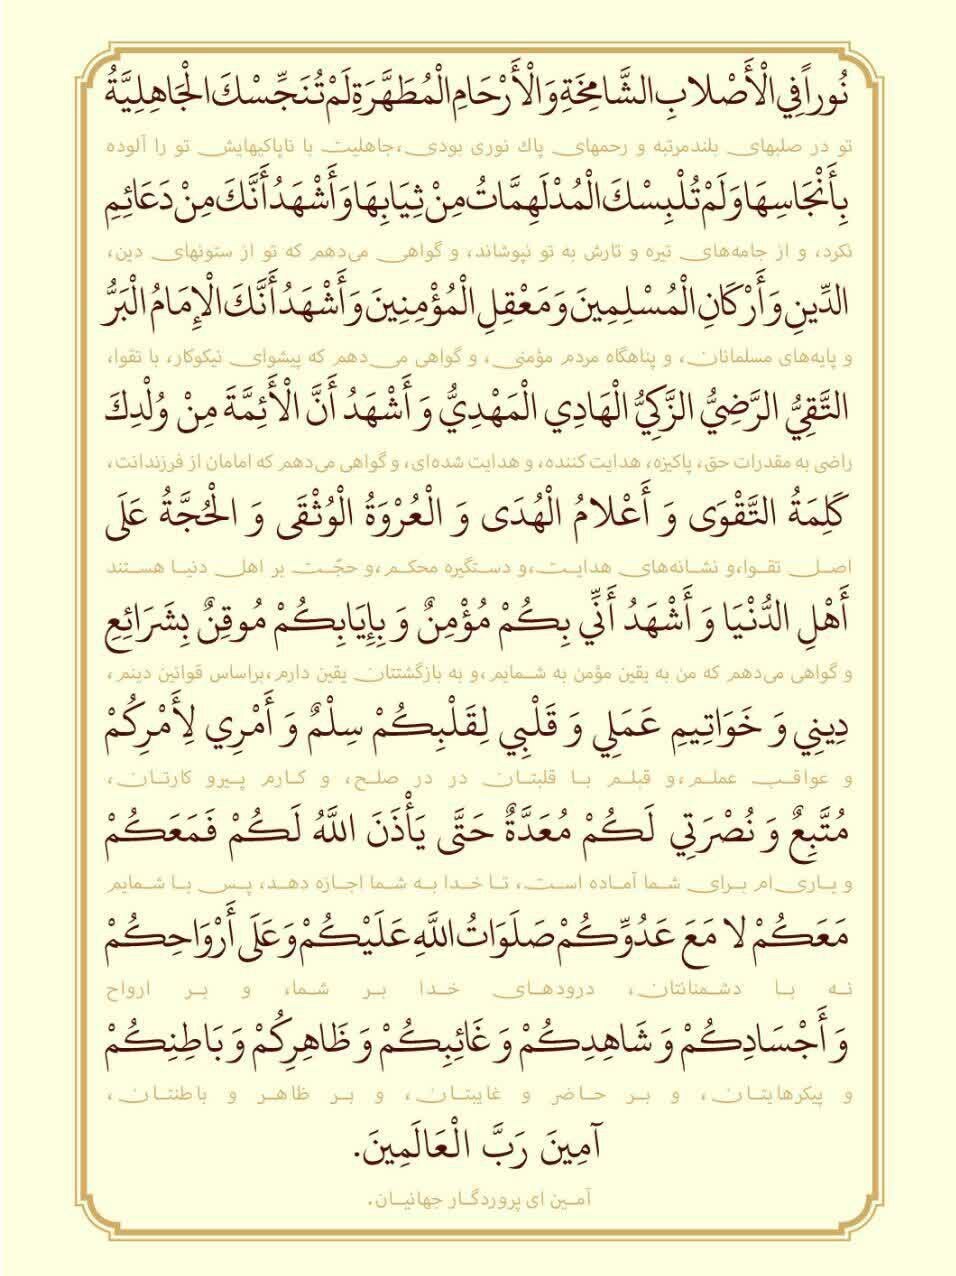 نُوراً فِي الْأَصْلابِ الشَّامِخَةِ وَ الْأَرْحَامِ الْمُطَهَّرَةِ لَمْ تُنَجِّسْكَ الْجَاهِلِيَّةُ
تو در صلبهای بلندمرتبه و رحمهای پاك نوری بودی،جاهلیت با ناپاکیهایش تو را آلوده
بِأَنْجَاسِهَا وَ لَمْ تُلْبِسْكَ الْمُدْلَهِمَّاتُ مِنْ ثِيَابِهَا وَ أَشْهَدُ أَنَّكَ مِنْ دَعَائِمِ
نکرد، و از جامه‌های تیره و تارش به تو نپوشاند، و گواهی می‌دهم که تو از ستونهای دین،
الدِّينِ وَ أَرْكَانِ الْمُسْلِمِينَ وَ مَعْقِلِ الْمُؤْمِنِينَ وَ أَشْهَدُ أَنَّكَ الْإِمَامُ الْبَرُّ
و پایه‌های مسلمانان، و پناهگاه مردم مؤمنی، و گواهی می‌دهم که پیشوای نیکوکار، با تقوا،
التَّقِيُّ الرَّضِيُّ الزَّكِيُّ الْهَادِي الْمَهْدِيُّ وَ أَشْهَدُ أَنَّ الْأَئِمَّةَ مِنْ وُلْدِكَ
راضی به مقدرات حق، پاکیزه، هدایت کننده، و هدایت شده‌ای، و گواهی می‌دهم که امامان از فرزندانت،
كَلِمَةُ التَّقْوَى وَ أَعْلامُ الْهُدَى وَ الْعُرْوَةُ الْوُثْقَى وَ الْحُجَّةُ عَلَى
اصل تقوا،و نشانه‌های هدایت،و دستگیره محکم،و حجّت بر اهل دنیا هستند
أَهْلِ الدُّنْيَا وَ أَشْهَدُ أَنِّي بِكُمْ مُؤْمِنٌ وَ بِإِيَابِكُمْ مُوقِنٌ بِشَرَائِعِ
و گواهی می‌دهم که من به یقین مؤمن به شمایم،و به بازگشتتان یقین دارم،براساس قوانین دینم،
دِينِي وَ خَوَاتِيمِ عَمَلِي وَ قَلْبِي لِقَلْبِكُمْ سِلْمٌ وَ أَمْرِي لِأَمْرِكُمْ
و عواقب عملم،و قبلم با قلبتان در در صلح، و کارم پیرو کارتان،
مُتَّبِعٌ وَ نُصْرَتِي لَكُمْ مُعَدَّةٌ حَتَّى يَأْذَنَ اللَّهُ لَكُمْ فَمَعَكُمْ
و یاری ام برای شما آماده است، تا خدا به شما اجازه دهد، پس با شمایم
مَعَكُمْ لا مَعَ عَدُوِّكُمْ صَلَوَاتُ اللَّهِ عَلَيْكُمْ وَ عَلَى أَرْوَاحِكُمْ
نه با دشمنانتان، درودهای خدا بر شما، و بر ارواح
وَ أَجْسَادِكُمْ وَ شَاهِدِكُمْ وَ غَائِبِكُمْ وَ ظَاهِرِكُمْ وَ بَاطِنِكُمْ
و پیکرهایتان، و بر حاضر و غایبتان، و بر ظاهر و باطنتان،
آمِينَ رَبَّ الْعَالَمِينَ.
آمین ای پروردگار جهانیان.